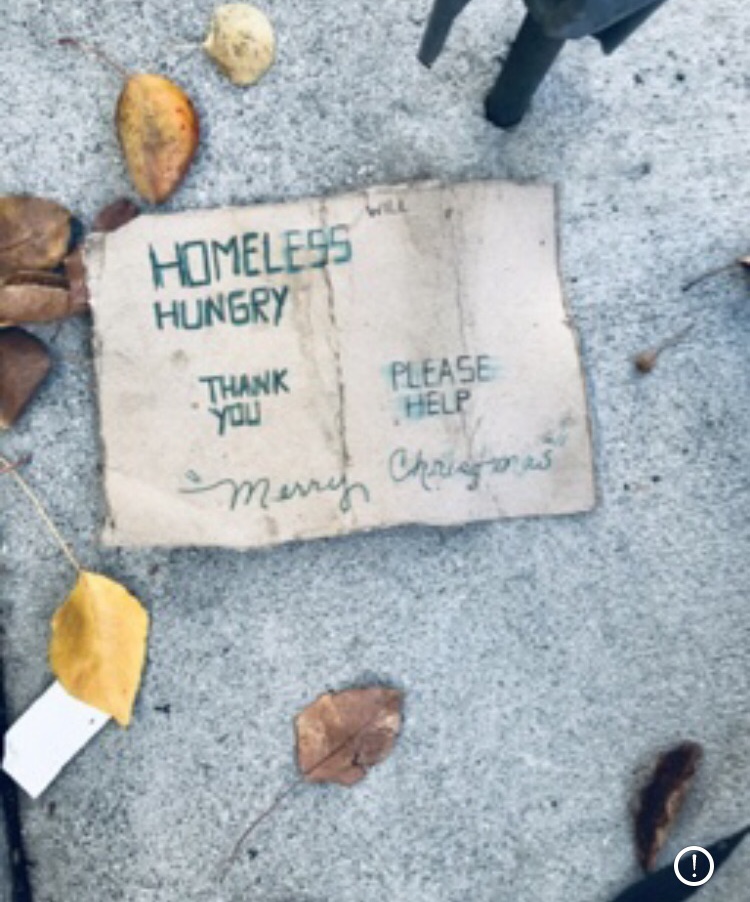 WILL
HOMELESS
HUNGRY
THANK
YOU
PLEASE
HELP
"Merry Christmas"